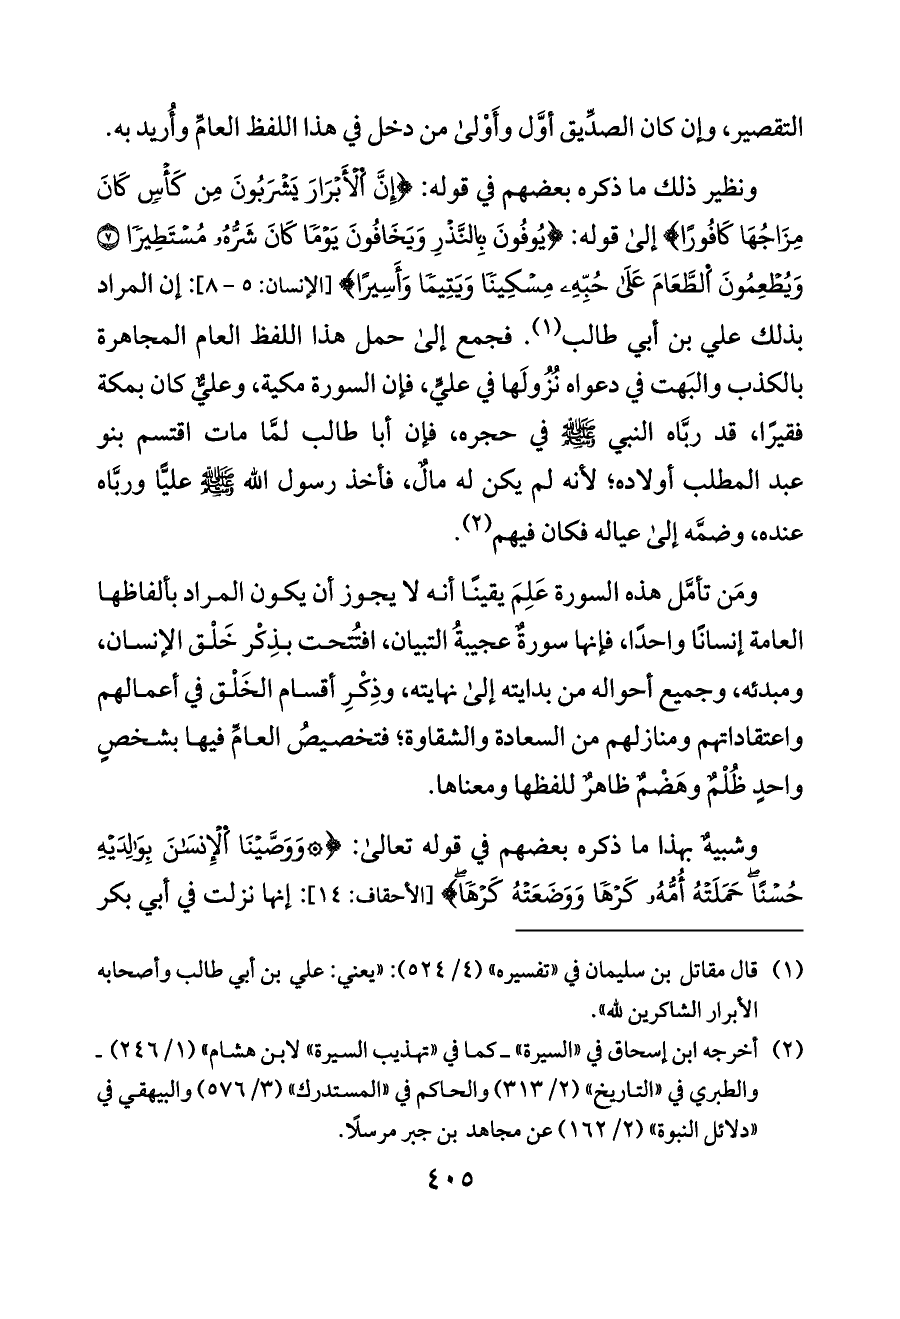 التقصير، وإن كان الصدِّيق أوَّل وأَوْلىٰ من دخل في هذا اللفظ العامِّ وأُريد به.
ونظير ذلك ما ذكره بعضهم في قوله: ﴿إِنَّ ٱلْأَبْرَارَ يَشْرَبُونَ مِن كَأْسٍ كَانَ
مِزَاجُهَا كَافُورًا﴾ إلىٰ قوله: ﴿يُوفُونَ بِالنَّذْرِ وَيَخَافُونَ يَوْمًا كَانَ شَرُّهُۥ مُسْتَطِيرًا ٧
وَيُطْعِمُونَ ٱلطَّعَامَ عَلَىٰ حُبِّهِۦ مِسْكِينًا وَيَتِيمًا وَأَسِيرًا﴾ [الإنسان: ٥ - ٨]: إن المراد
بذلك علي بن أبي طالب(١). فجمع إلىٰ حمل هذا اللفظ العام المجاهرة
بالكذب والبَهت في دعواه نُزُولَها في عليٍّ، فإن السورة مكية، وعليٌّ كان بمكة
فقيرًا، قد ربَّاه النبي ﷺ في حجره، فإن أبا طالب لمَّا مات اقتسم بنو
عبد المطلب أولاده؛ لأنه لم يكن له مالٌ، فأخذ رسول الله ﷺ عليًّا وربَّاه
عنده، وضمَّه إلىٰ عياله فكان فيهم(٢).
ومَن تأمَّل هذه السورة عَلِمَ يقينًا أنه لا يجوز أن يكون المراد بألفاظها
العامة إنسانًا واحدًا، فإنها سورةٌ عجيبةُ التبيان، افتُتحت بذِكْر خَلْق الإنسان،
ومبدئه، وجميع أحواله من بدايته إلىٰ نهايته، وذِكْرِ أقسام الخَلْق في أعمالهم
واعتقاداتهم ومنازلهم من السعادة والشقاوة؛ فتخصيصُ العامِّ فيها بشخصٍ
واحدٍ ظُلْمٌ وهَضْمٌ ظاهرٌ للفظها ومعناها.
وشبيهٌ بهذا ما ذكره بعضهم في قوله تعالىٰ: ﴿۞وَوَصَّيْنَا ٱلْإِنسَٰنَ بِوَٰلِدَيْهِ
حُسْنًاۖ حَمَلَتْهُ أُمُّهُۥ كَرْهًا وَوَضَعَتْهُ كَرْهًاۖ﴾ [الأحقاف: ١٤]: إنها نزلت في أبي بكر
(١) قال مقاتل بن سليمان في «تفسيره» (٤/ ٥٢٤): «يعني: علي بن أبي طالب وأصحابه
الأبرار الشاكرين لله».
(٢) أخرجه ابن إسحاق في «السيرة» ـ كما في «تهذيب السيرة» لابن هشام» (١/ ٢٤٦) ـ
والطبري في «التاريخ» (٢/ ٣١٣) والحاكم في «المستدرك» (٣/ ٥٧٦) والبيهقي في
«دلائل النبوة» (٢/ ١٦٢) عن مجاهد بن جبر مرسلًا.
٤٠٥